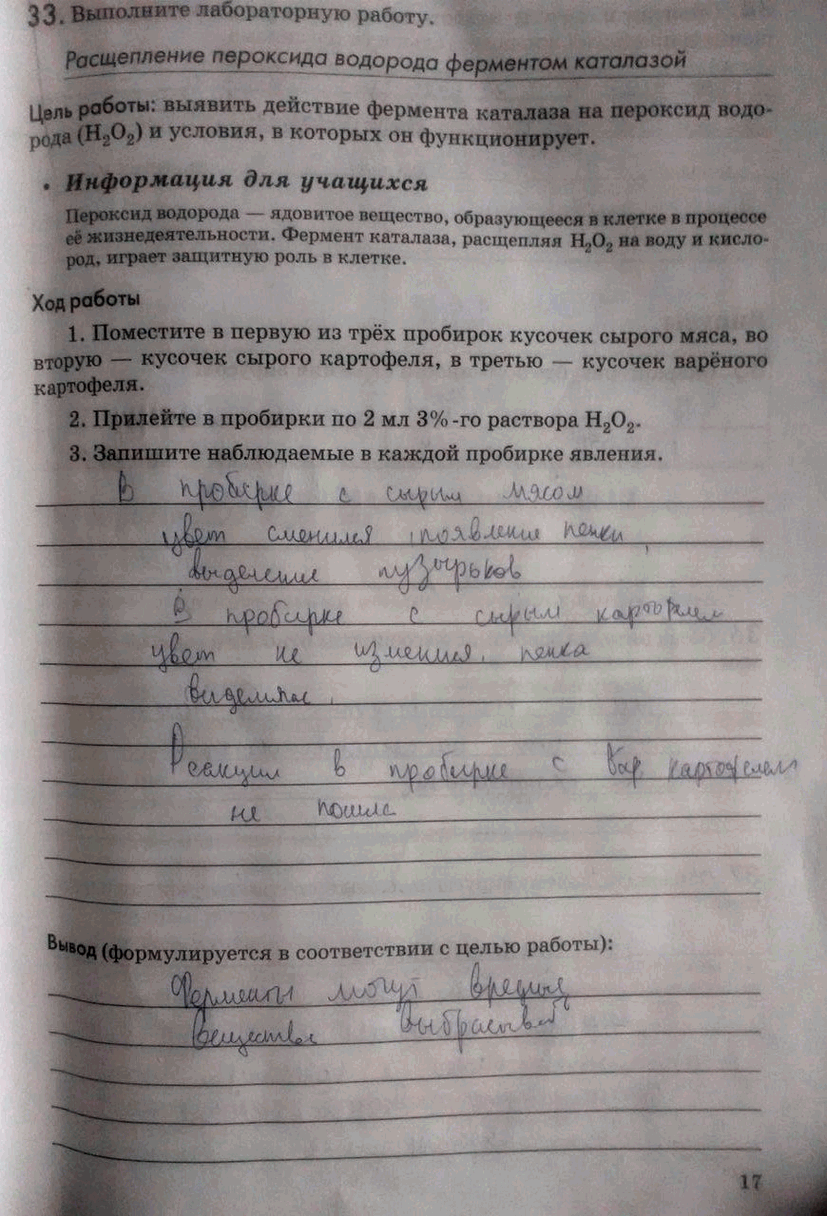 33. Выполните лабораторную работу.
Расщепление пероксида водорода ферментом каталазой
Цель работы: выявить действие фермента каталаза на пероксид водо-
рода (H₂O₂) и условия, в которых он функционирует.
• Информация для учащихся
Пероксид водорода — ядовитое вещество, образующееся в клетке в процессе
её жизнедеятельности. Фермент каталаза, расщепляя H₂O₂ на воду и кисло-
род, играет защитную роль в клетке.
Ход работы
1. Поместите в первую из трёх пробирок кусочек сырого мяса, во
вторую — кусочек сырого картофеля, в третью — кусочек варёного
картофеля.
2. Прилейте в пробирки по 2 мл 3%-го раствора H₂O₂.
3. Запишите наблюдаемые в каждой пробирке явления.
В пробирке с сырым мясом
цвет сменился, появление пенки,
выделение пузырьков
В пробирке с сырым картофелем
цвет не изменился, пенка
выделялас.
Реакция в пробирке с вар картофелем
не пошла
Вывод (формулируется в соответствии с целью работы):
Ферменты могут вредные
вещества выбрасывать
17